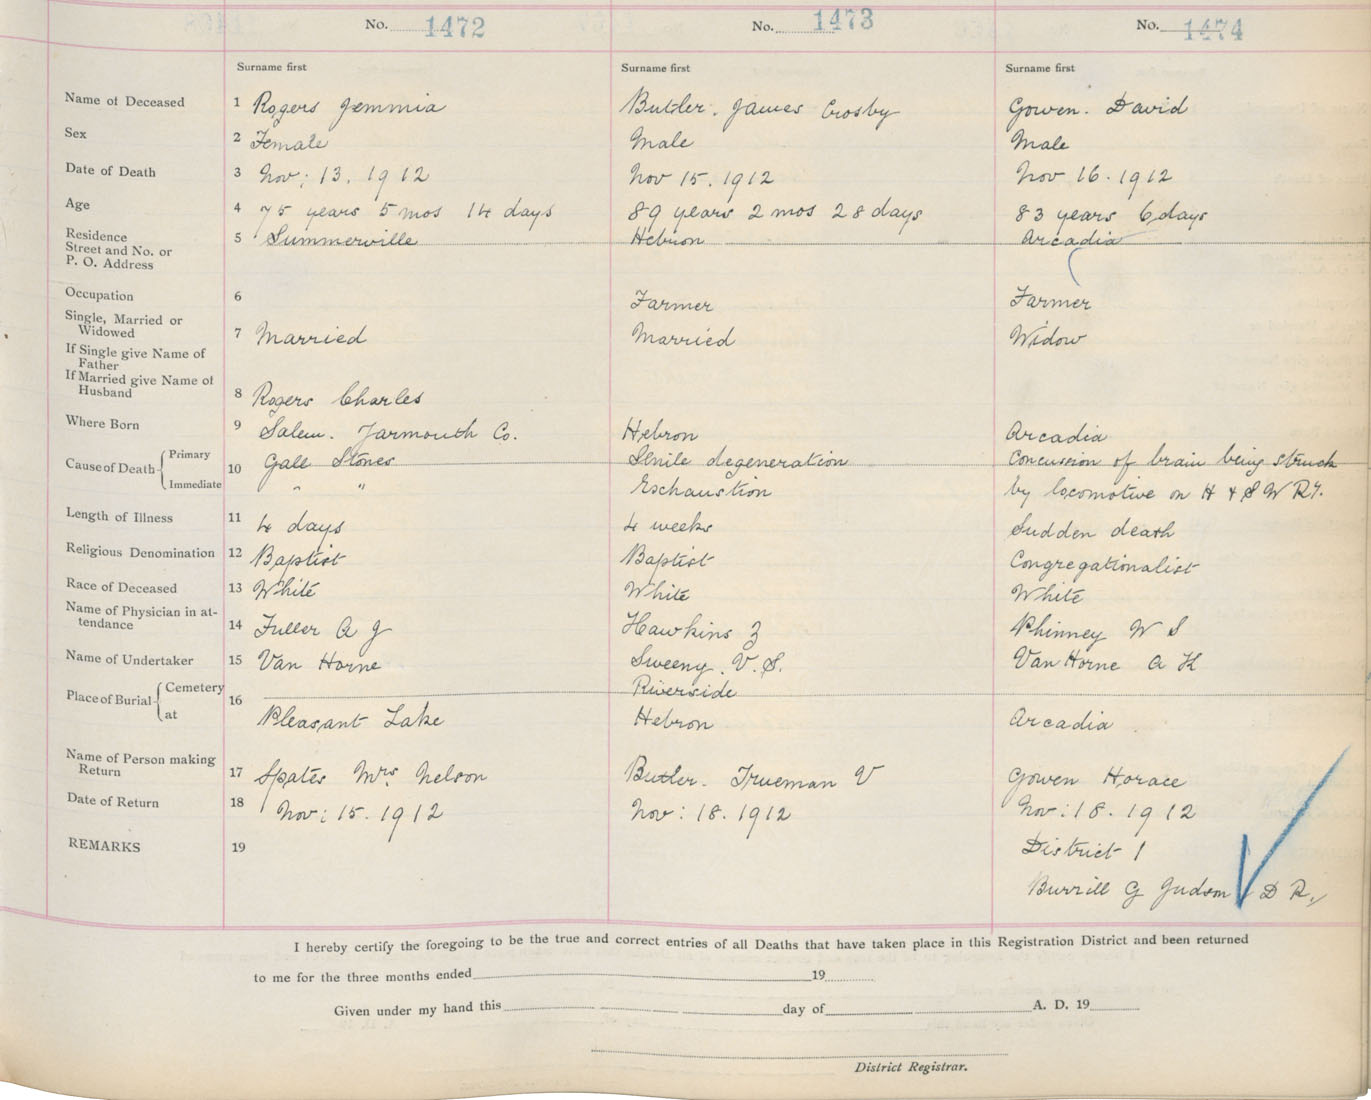 No. 1472 No. 1473 No. 1474
Surname first Surname first Surname first
Name of Deceased 1 Rogers Jemmia Butler. James Crosby Gowen. David
Sex 2 Female Male Male
Date of Death 3 Nov: 13. 1912 Nov 15. 1912 Nov 16. 1912
Age 4 75 years 5 mos 14 days 89 years 2 mos 28 days 83 years 6 days
Residence 5 Summerville Hebron Arcadia
Street and No. or
P. O. Address
Occupation 6 Farmer Farmer
Single, Married or
Widowed 7 Married Married Widow
If Single give Name of
Father
If Married give Name of
Husband 8 Rogers Charles
Where Born 9 Salem. Yarmouth Co. Hebron Arcadia
Cause of Death Primary 10 Gall Stones Senile degeneration Concussion of brain being struck
Immediate " " Exchaustion by locomotive on H & S W Ry.
Length of Illness 11 4 days 4 weeks Sudden death
Religious Denomination 12 Baptist Baptist Congregationalist
Race of Deceased 13 White White White
Name of Physician in at-
tendance 14 Fuller A J Hawkins Z Phinney W S
Name of Undertaker 15 Van Horne Sweeny. V. S. Van Horne A H
Place of Burial Cemetery 16 Riverside
at Pleasant Lake Hebron Arcadia
Name of Person making
Return 17 Spates Mrs Nelson Butler. Trueman V Gowen Horace
Date of Return 18 Nov: 15. 1912 Nov: 18. 1912 Nov: 18. 1912
REMARKS 19 District 1
Burrill G Judson D R.
I hereby certify the foregoing to be the true and correct entries of all Deaths that have taken place in this Registration District and been returned
to me for the three months ended 19
Given under my hand this day of A. D. 19
District Registrar.